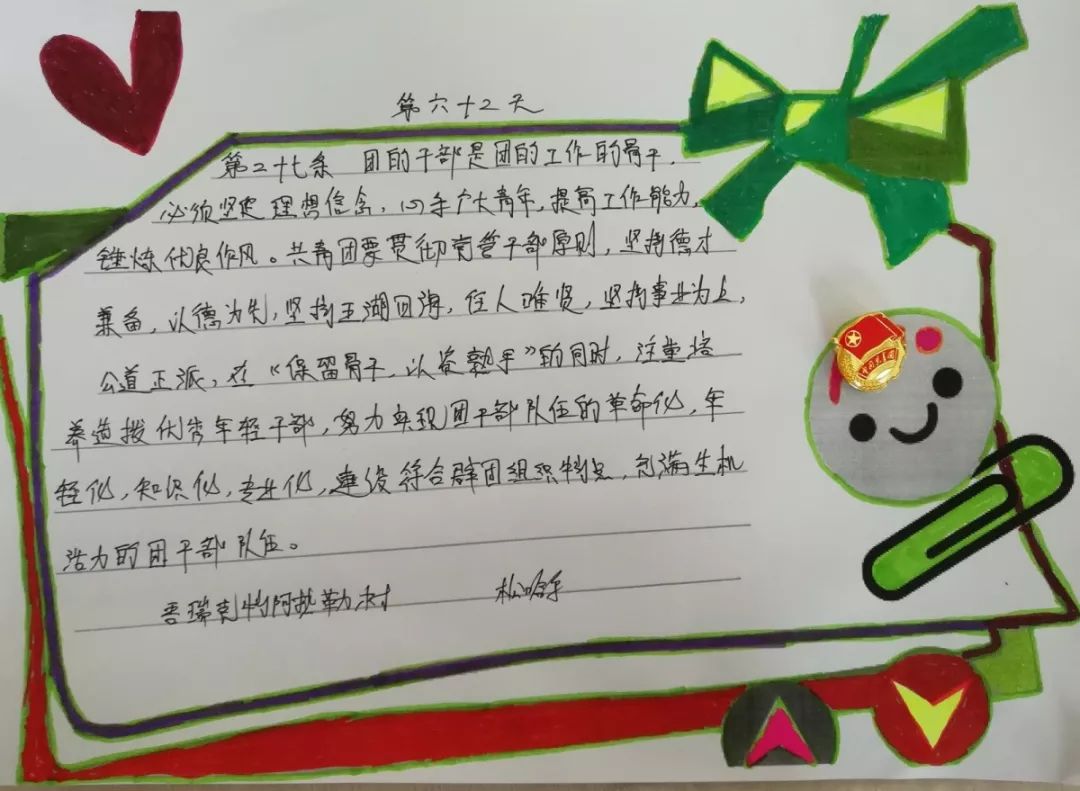 第六十二天
第二十七条 团的干部是团的工作的骨干.
必须坚定理想信念,心系广大青年,提高工作能力,
锤炼优良作风。共青团要贯彻党管干部原则,坚持德才
兼备,以德为先,坚持五湖四海,任人唯贤,坚持事业为上,
公道正派,在“保留骨干,以资熟手”的同时,注重培
养选拨优秀年轻干部,努力实现团干部队伍的革命化,年
轻化,知识化,专业化,建设符合群团组织特点,充满生机
活力的团干部队伍。
吾瑞克特阿热勒村 松哈尔
中国共青团